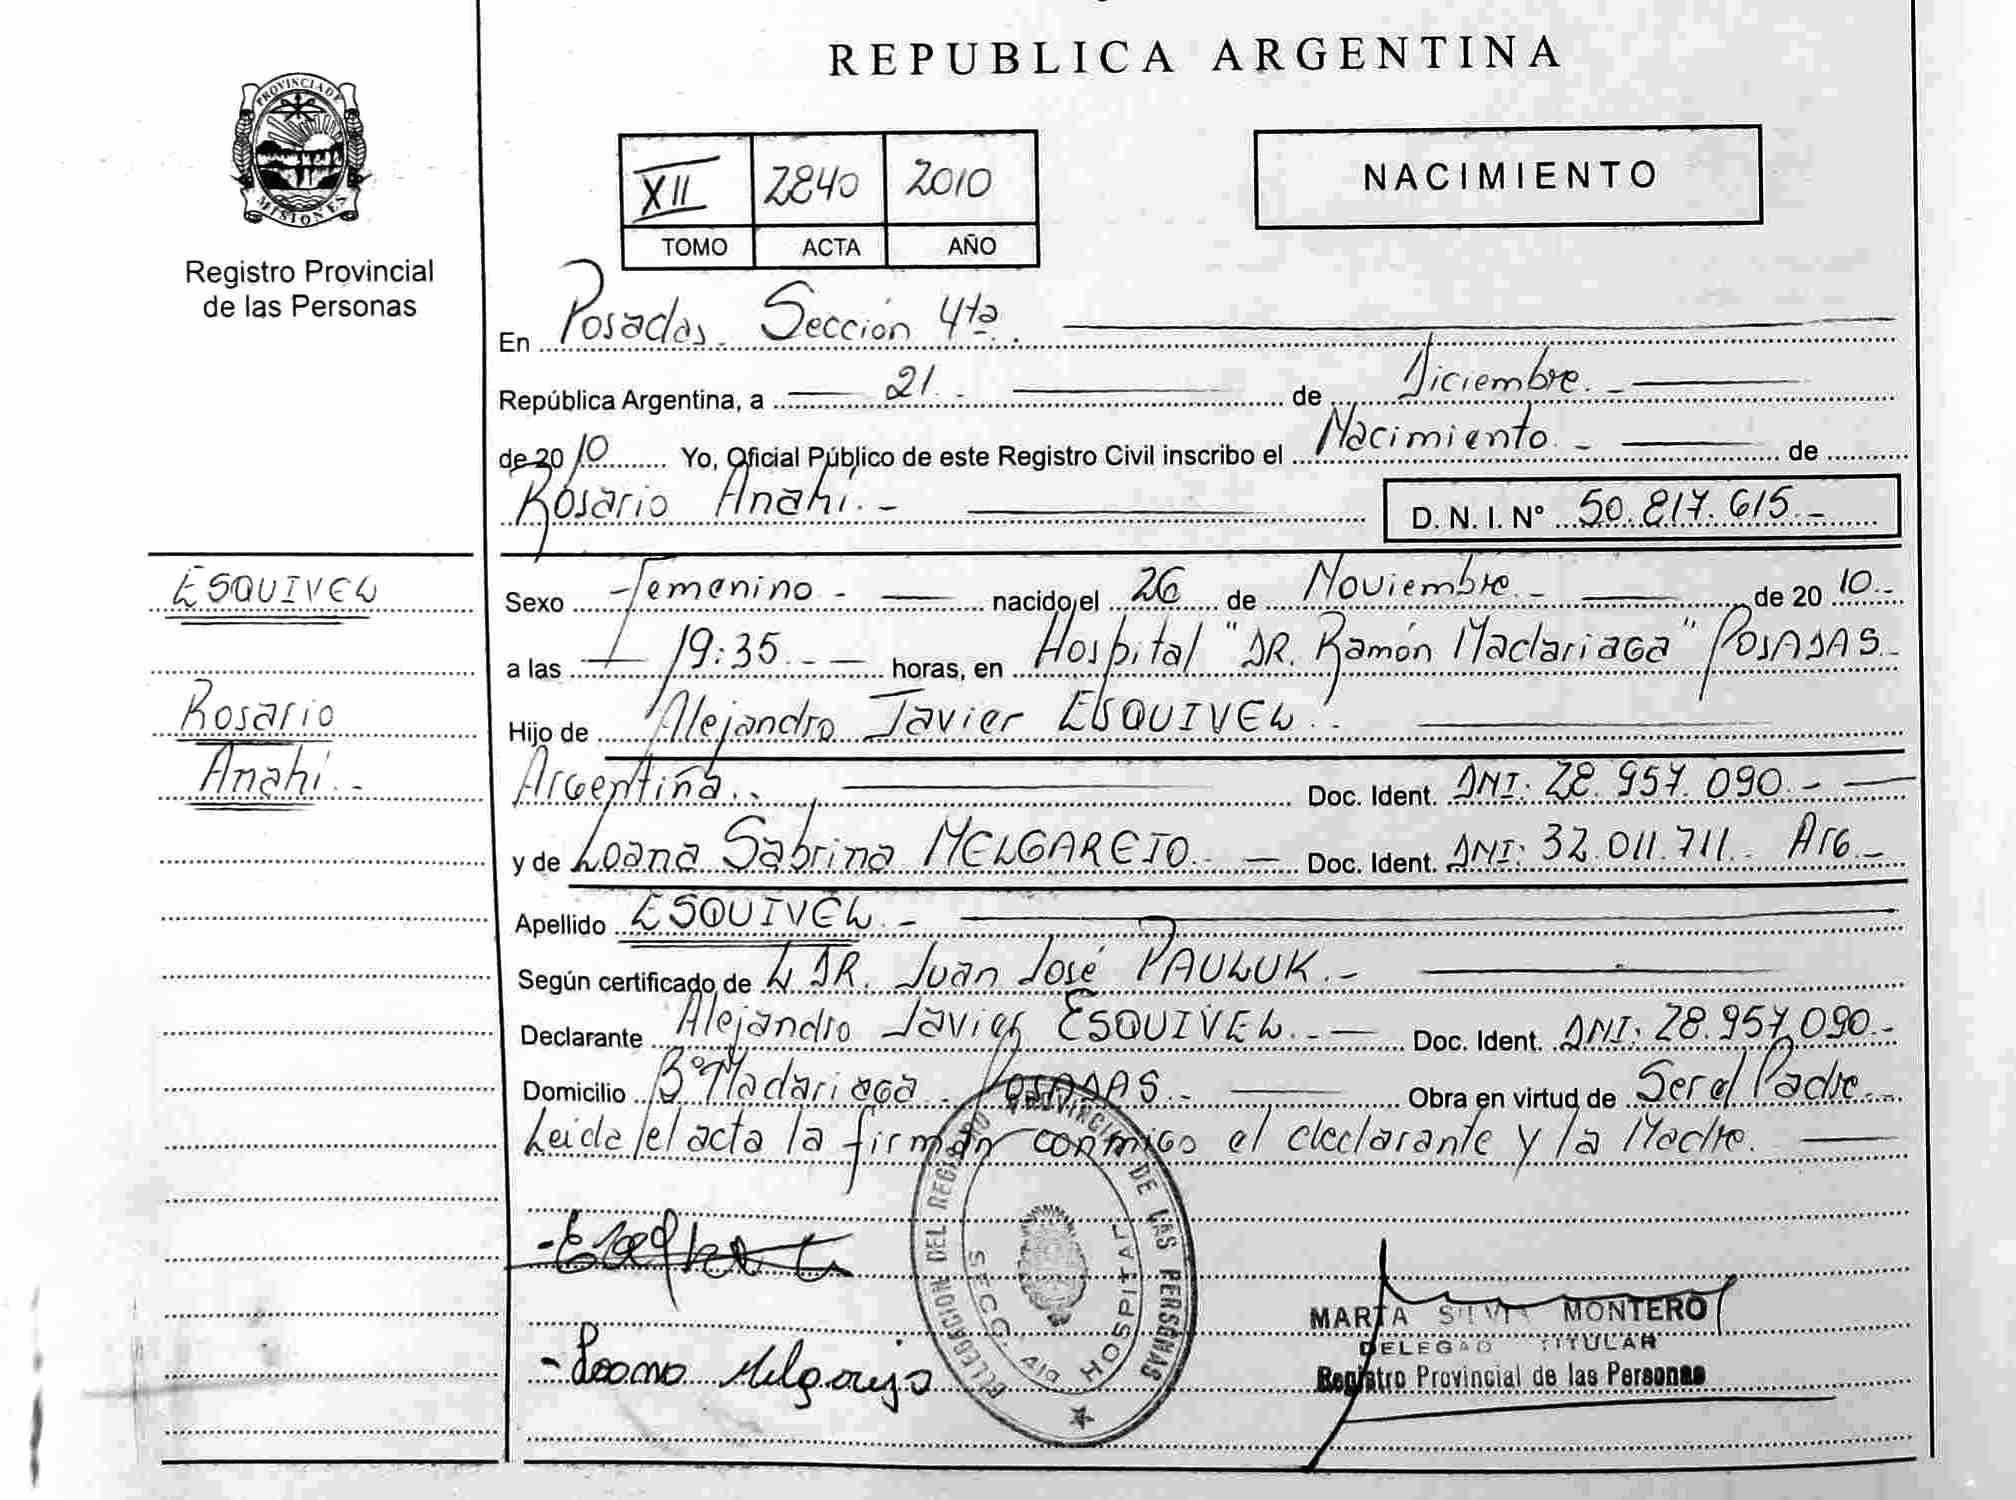 REPUBLICA ARGENTINA
PROVINCIA DE MISIONES
Registro Provincial
de las Personas
XII 2840 2010
TOMO ACTA AÑO
NACIMIENTO
En Posadas. Sección 4ta.
República Argentina, a 21. de Diciembre.-
de 2010 Yo, Oficial Público de este Registro Civil inscribo el Nacimiento.- de
Rosario Anahí.- D. N. I. N° 50.817.615.-
ESQUIVEL
Rosario
Anahí.-
Sexo Femenino.- nacido el 26 de Noviembre.- de 2010.-
a las 19:35.- horas, en Hospital "DR. Ramón Madariaga" POSADAS.-
Hijo de Alejandro Javier ESQUIVEL.
Argentina.- Doc. Ident. DNI: 28.957.090.-
y de Loana Sabrina MELGAREJO.- Doc. Ident. DNI: 32.011.711.- Arg.-
Apellido ESQUIVEL.-
Según certificado de L DR. Juan José PAULUK.-
Declarante Alejandro Javier ESQUIVEL.- Doc. Ident. DNI: 28.957.090.-
Domicilio B° Madariaga. POSADAS.- Obra en virtud de Ser el Padre.-
Leida el acta la firman conmigo el declarante y la Madre.
DELEGACION DEL REGISTRO PROVINCIAL DE LAS PERSONAS
SECC. 4ta HOSPITAL
- Loana Melgarejo
MARTA SILVIA MONTERO
DELEGADO TITULAR
Registro Provincial de las Personas